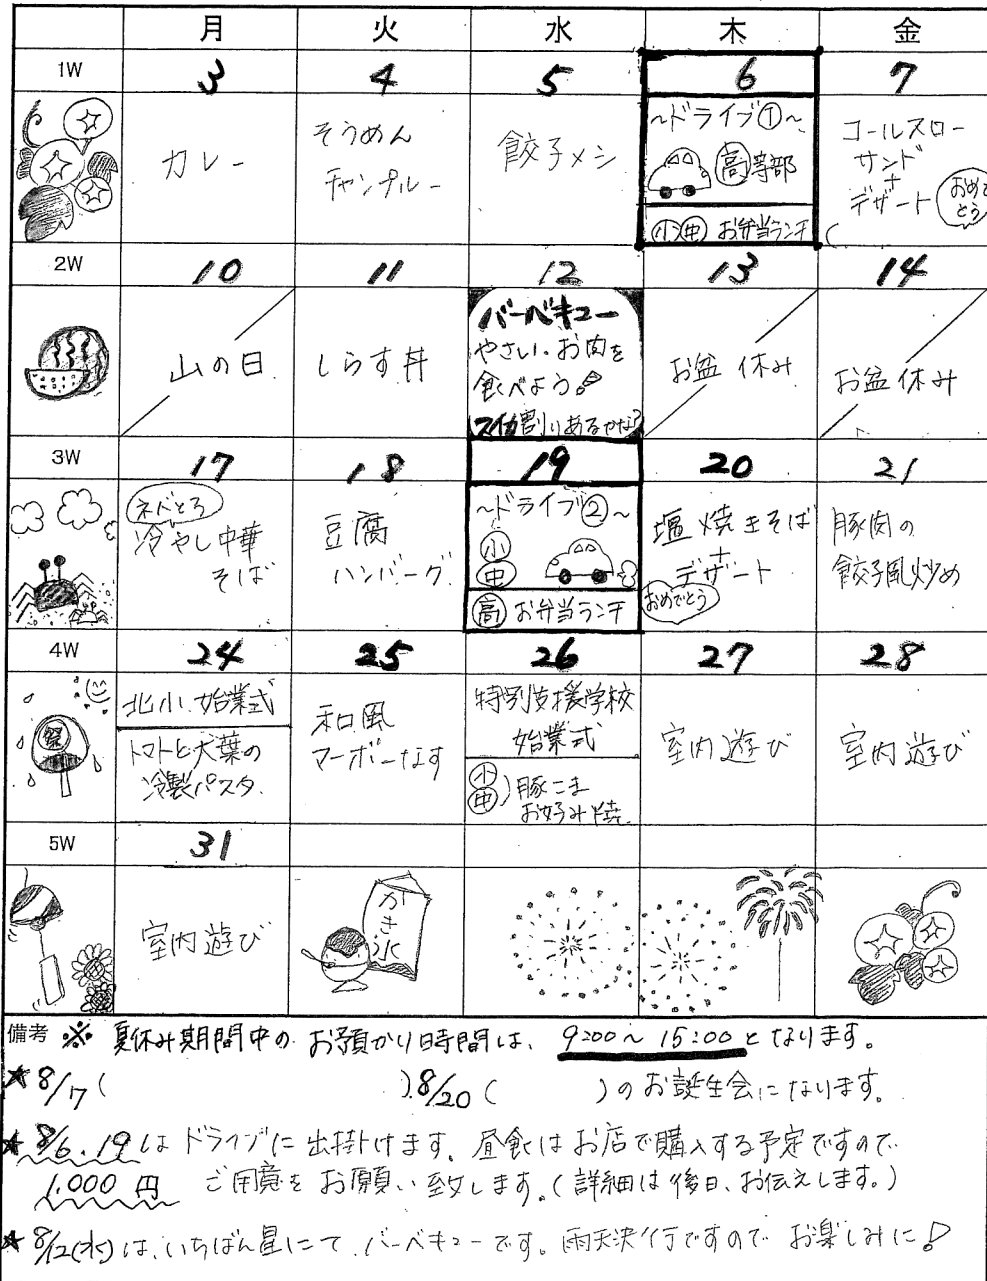 月 火 水 木 金
1W 3 4 5 6 7
カレー
そうめん
チャンプルー
餃子メシ
~ドライブ①~
高等部
小 中 お弁当ランチ
コールスロー
サンド
+
デザート
おめで
とう
2W 10 11 12 13 14
山の日
しらす丼
バーベキュー
やさい・お肉を
食べよう!
スイカ割りあるかな?
お盆休み
お盆休み
3W 17 18 19 20 21
ネバとろ
冷やし中華
そば
豆腐
ハンバーグ
~ドライブ②~
小
中
高 お弁当ランチ
塩焼きそば
+
デザート
おめでとう
豚肉の
餃子風炒め
4W 24 25 26 27 28
祭
北小 始業式
トマトと大葉の
冷製パスタ
和風
マーボーなす
特別支援学校
始業式
小
中 ) 豚こま
お好み焼
室内遊び
室内遊び
5W 31
室内遊び
かき氷
備考 ※ 夏休み期間中の お預かり時間は、9:00~15:00となります。
★8/7( ) 8/20( )のお誕生会になります。
★8/6.19はドライブに出掛けます。昼食はお店で購入する予定ですので
1,000円 ご用意をお願い致します。(詳細は後日、お伝えします。)
★8/12(水)は、いちばん星にて バーベキューです。雨天決行ですので お楽しみに!